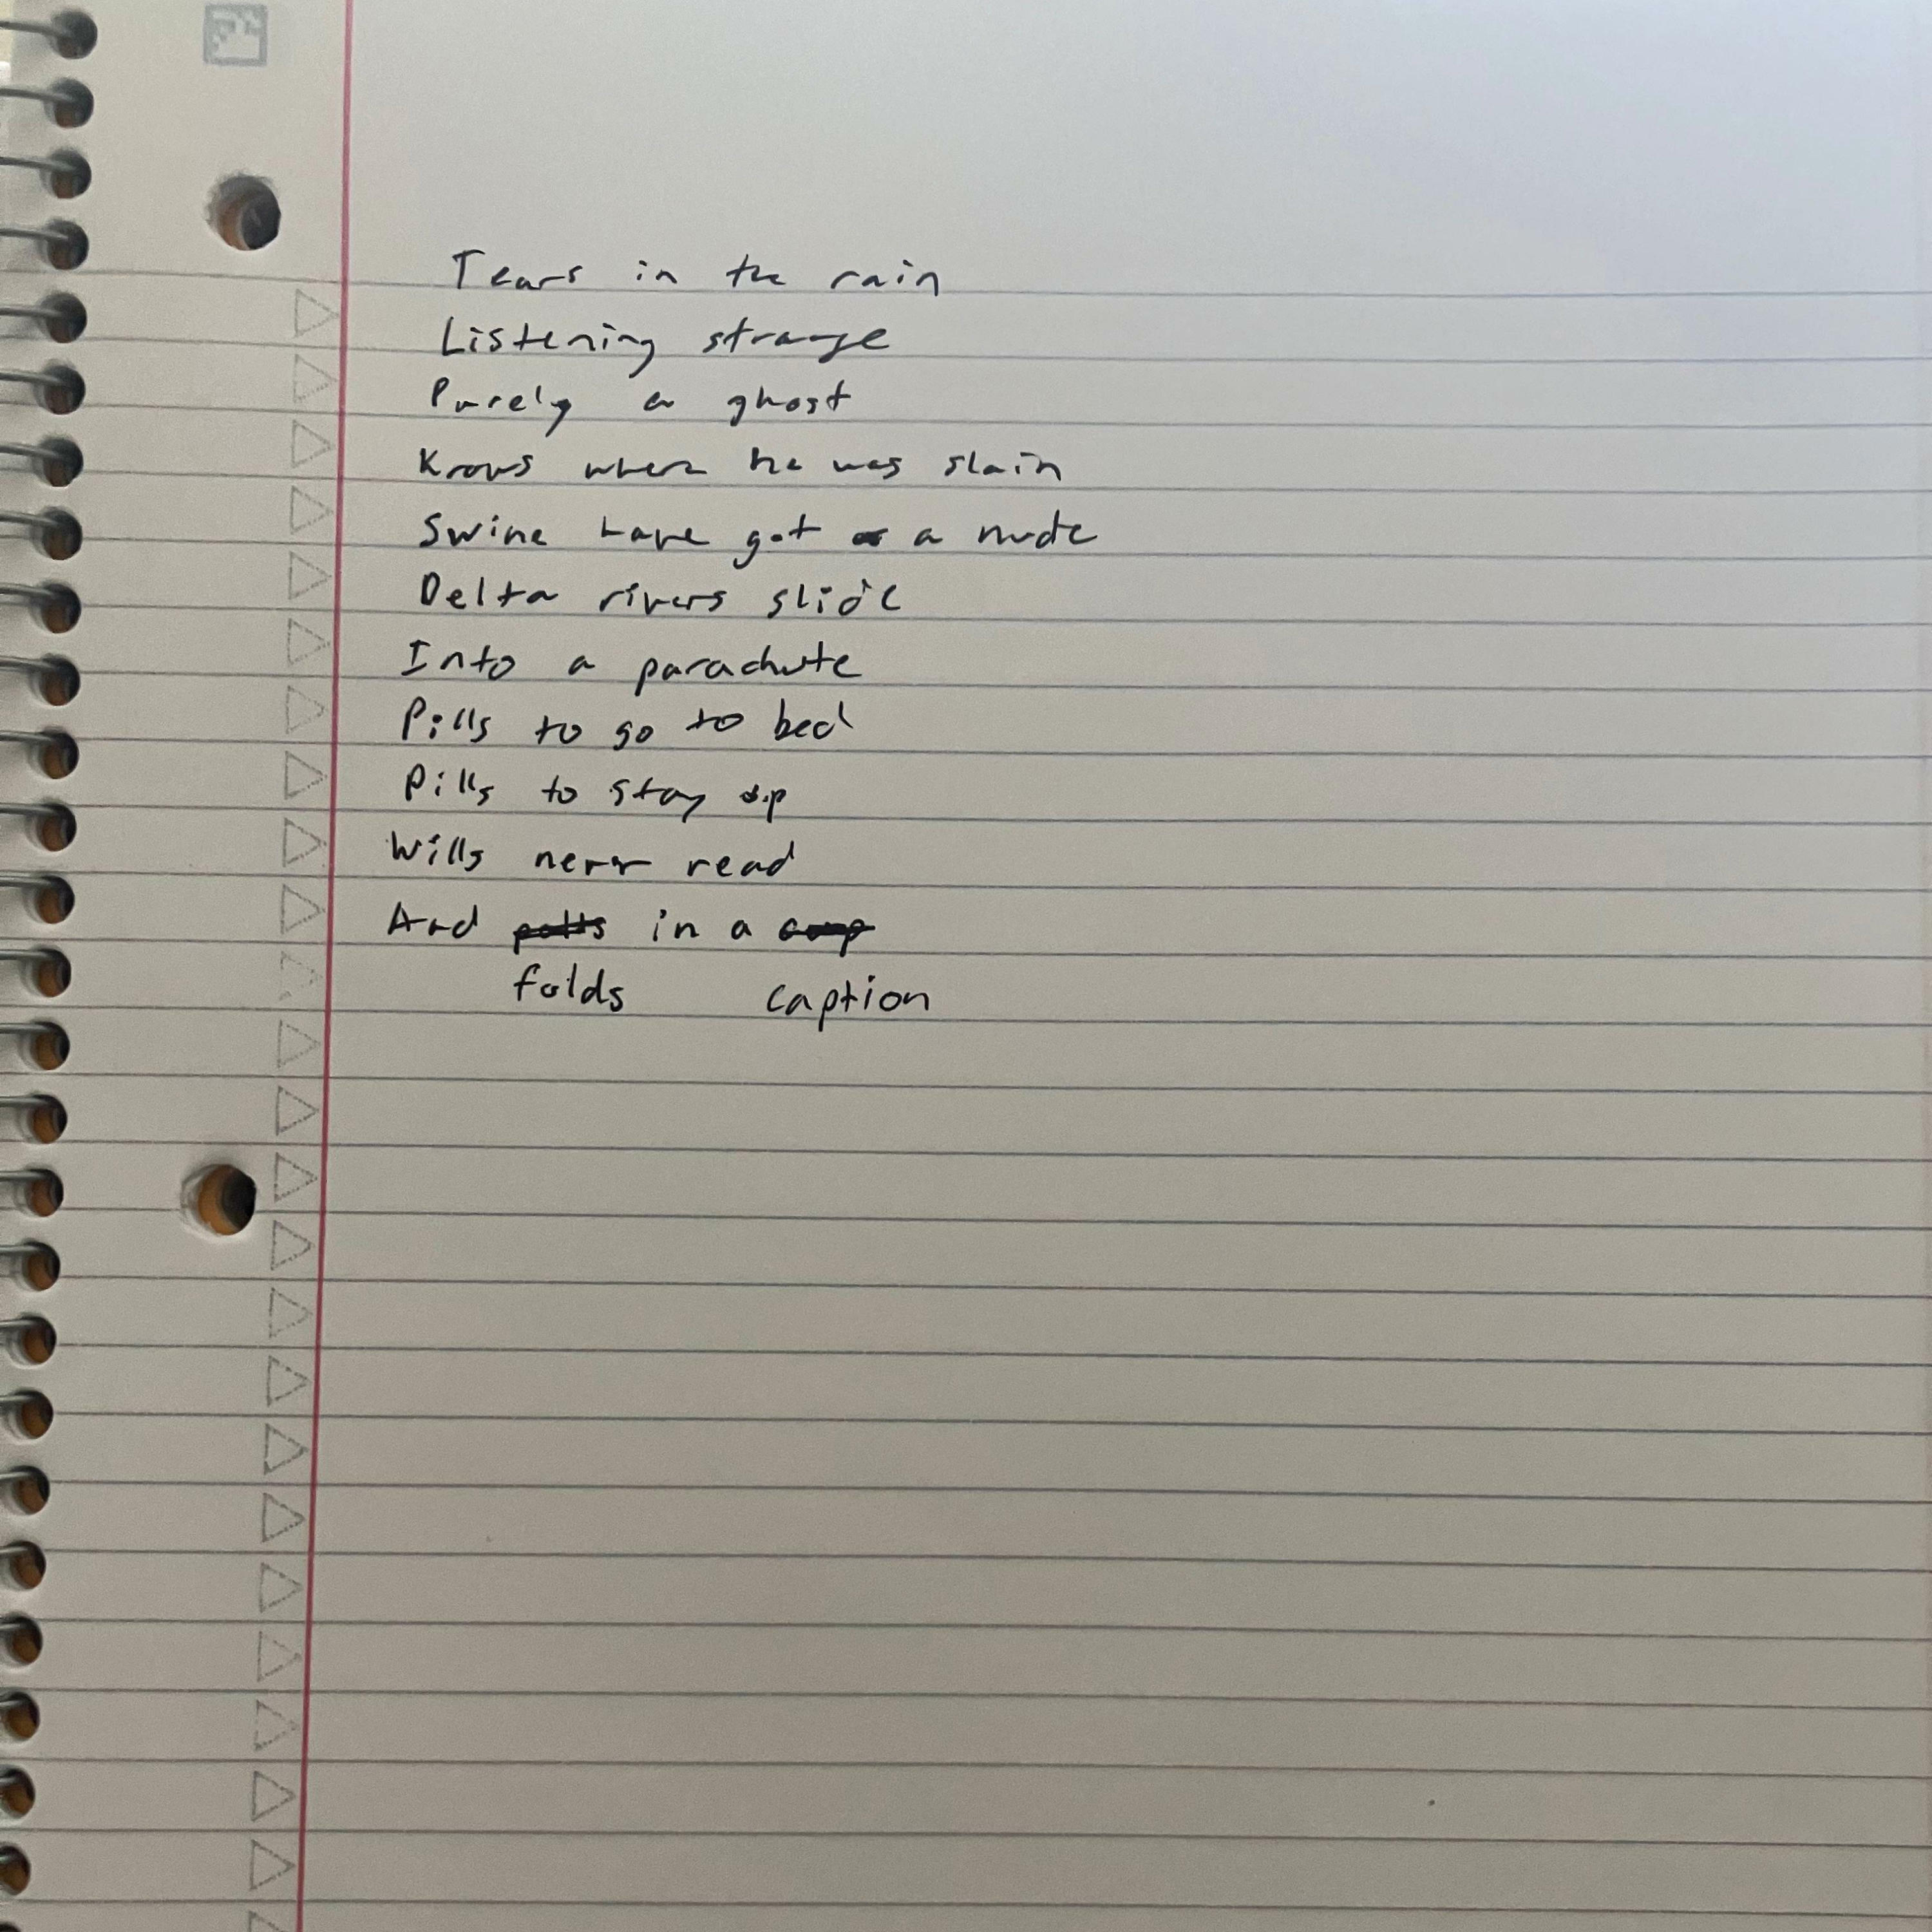 Tears in the rain
Listening strange
Purely a ghost
Knows where he was slain
Swine have got a nude
Delta rivers slide
Into a parachute
Pills to go to bed
Pills to stay up
Wills never read
And in a
folds caption